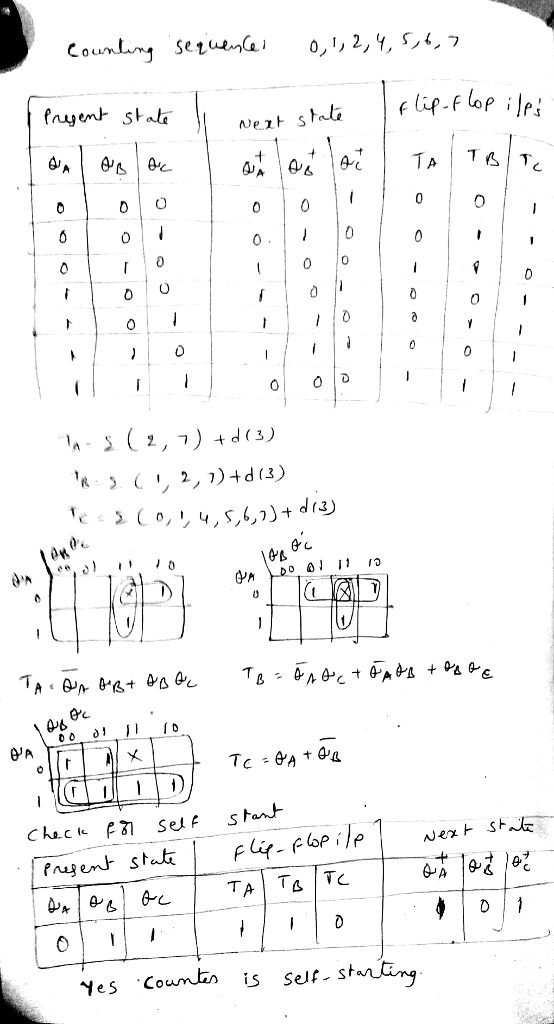 Counting sequences 0, 1, 2, 4, 5, 6, 7
Present state Next state Flip-Flop i/p's
QA QB QC QA+ QB+ QC+ TA TB TC
0 0 0 0 0 1 0 0 1
0 0 1 0 1 0 0 1 1
0 1 0 1 0 0 1 1 0
1 0 0 1 0 1 0 0 1
1 0 1 1 1 0 0 1 1
1 1 0 1 1 1 0 0 1
1 1 1 0 0 0 1 1 1
TA = Σ (2, 7) + d(3)
TB = Σ (1, 2, 7) + d(3)
TC = Σ (0, 1, 4, 5, 6, 7) + d(3)
QBQC QBQC
QA 00 01 11 10 QA 00 01 11 10
0 X 1 0 1 X 1
1 1 1 1
TA = Q̅A QB + QB QC TB = Q̅A QC + Q̅A QB + QB QC
QBQC
QA 00 01 11 10
0 1 1 X TC = QA + Q̅B
1 1 1 1 1
Check for self start
Present state Flip-Flop i/p Next state
QA QB QC TA TB TC QA+ QB+ QC+
0 1 1 1 1 0 1 0 1
Yes counter is self-starting.